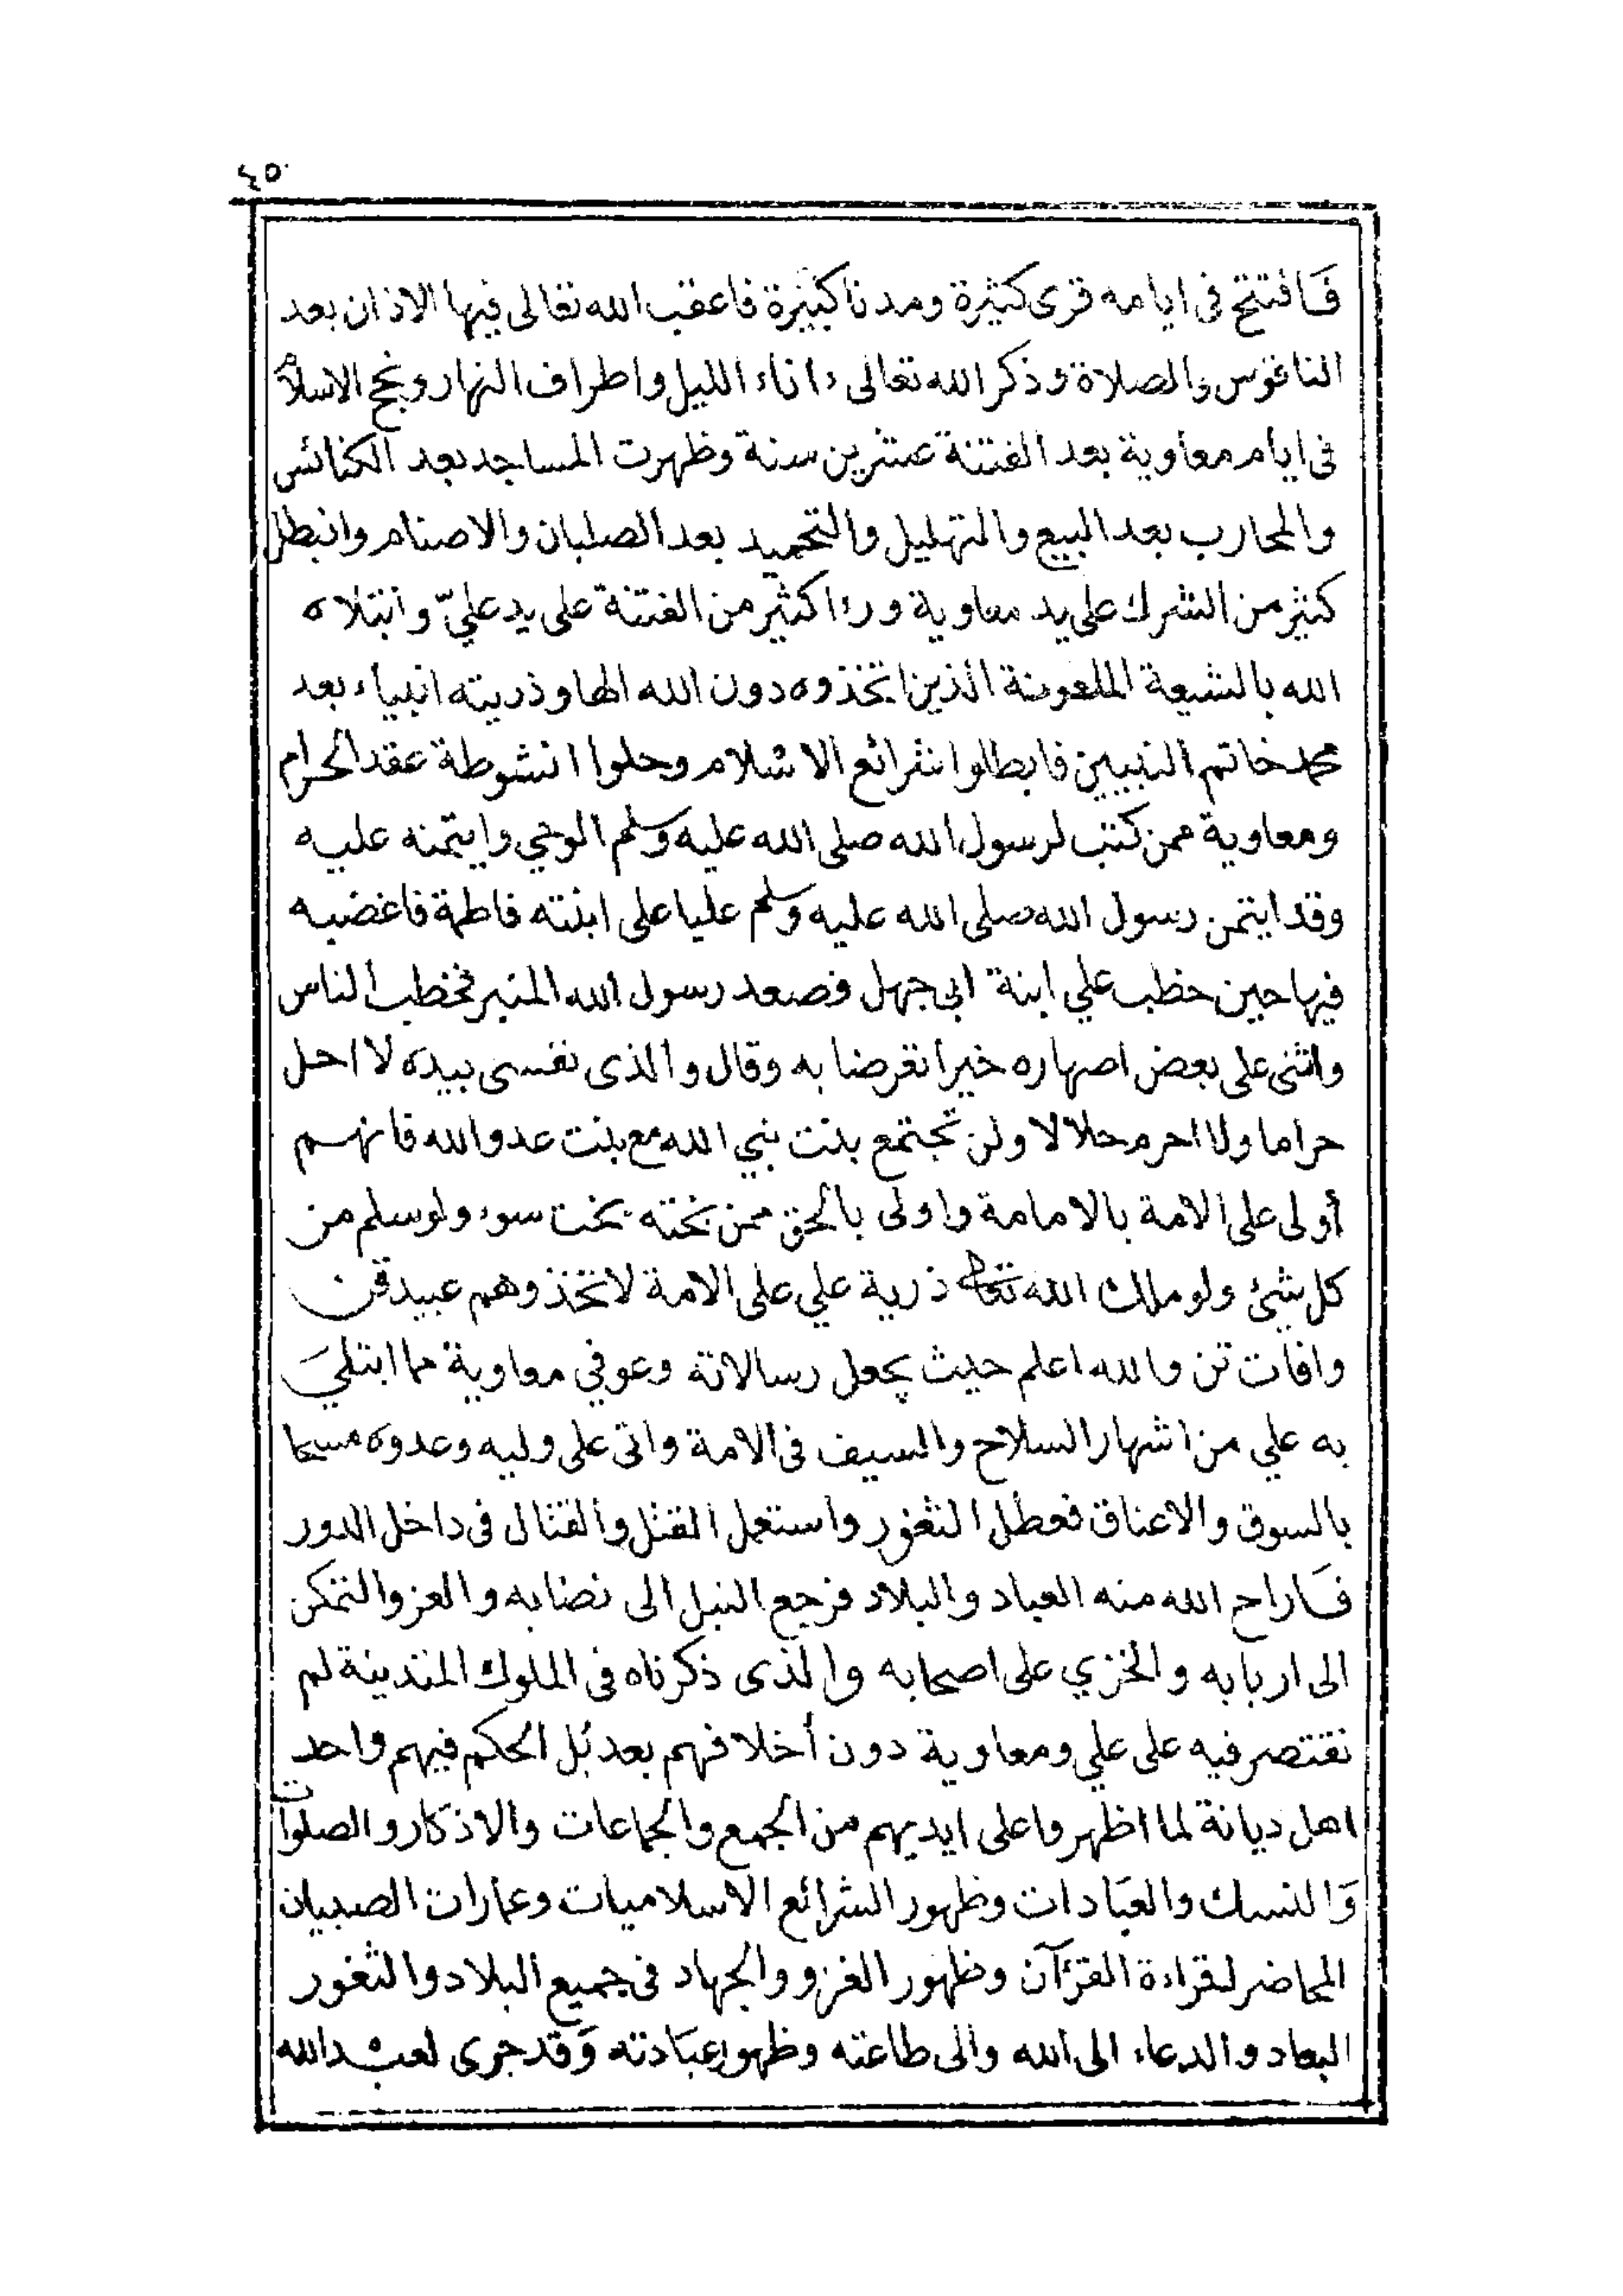 ٤٥
فَافتتح في ايامه قرى كثيرة ومدنا كثيرة فاعقب الله تعالى فيها الاذان بعد
الناقوس والصلاة وذكر الله تعالى ءاناء الليل واطراف النهار ونجح الاسلام
فى ايام معاوية بعد الفتنة عشرين سنة وظهرت المساجد بعد الكنائس
والمحارب بعد البيع والتهليل والتحميد بعد الصلبان والاصنام وانبطل
كثير من الشرك على يد معاوية ورءا كثير من الفتنة على يد عليّ وابتلاه
الله بالشيعة الملعونة الذين اتخذوه دون الله الها وذريته انبياء بعد
محمد خاتم النبيين فابطلوا شرائع الاسلام وحلوا انشوطة عقد الحرام
ومعاوية ممن كتب لرسول الله صلى الله عليه وسلم الوحي وايتمنه عليه
وقد ايتمن رسول الله صلى الله عليه وسلم عليا على ابنته فاطمة فاغضبه
فيها حين خطب علي ابنة ابي جهل فصعد رسول الله المنبر فخطب الناس
واثنى على بعض اصهاره خيرا تعرضا به وقال والذى نفسى بيده لا احل
حراما ولا احرم حلالا ولن تجتمع بنت نبي الله مع بنت عدو الله فانهم
أولى على الامة بالامامة واولى بالحق ممن بخته بخت سوء ولو سلم من
كل شيئ ولو ملك الله تعالى ذرية علي على الامة لاتخذوهم عبيد قن
وافات تن والله اعلم حيث يجعل رسالاته وعوفي معاوية مما ابتليَ
به علي من اشهار السلاح والسيف فى الامة واتى على وليه وعدوه مسحا
بالسوق والاعناق فعطل الثغور واستعمل القتل والقتال فى داخل الدور
فَاراح الله منه العباد والبلاد فرجع النبل الى نصابه والعز والتمكن
الى اربابه والخزي على اصحابه والذى ذكرناه فى الملوك المتدينة لم
نقتصر فيه على علي ومعاوية دون أخلافهم بعد بُل الحكم فيهم واحد
اهل ديانة لما اظهروا على ايديهم من الجمع والجماعات والاذكار والصلوات
وَالنسك والعبَادات وظهور الشرائع الاسلاميات وعمارات الصبيان
المحاضر لقراءة القرءآن وظهور الغزو والجهاد فى جميع البلاد والثغور
البعاد والدعاء الى الله والى طاعته وظهور عبَادته وَقد جرى لعبد الله